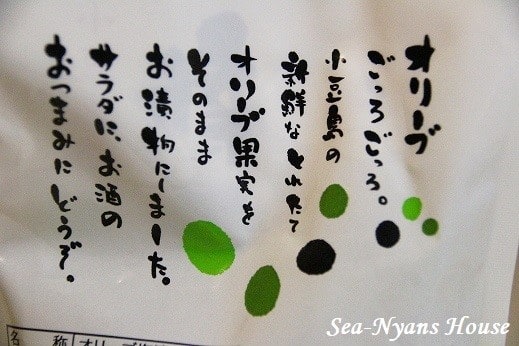 オリーブ
ごっろごっろ。
小豆島の
新鮮なとれたて
オリーブ果実を
そのまま
お漬物にしました。
サラダに、お酒の
おつまみにどうぞ。
名 称
Sea-Nyans House